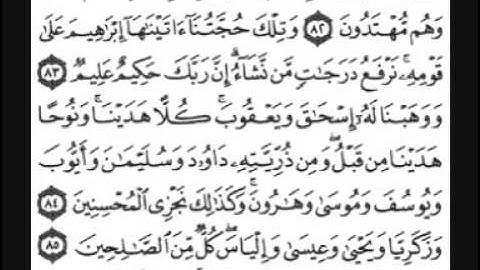 وَهُم مُّهْتَدُونَ ٨٢ وَتِلْكَ حُجَّتُنَآ ءَاتَيْنَـٰهَآ إِبْرَٰهِيمَ عَلَىٰ
قَوْمِهِۦ ۚ نَرْفَعُ دَرَجَـٰتٍ مَّن نَّشَآءُ ۗ إِنَّ رَبَّكَ حَكِيمٌ عَلِيمٌ ٨٣
وَوَهَبْنَا لَهُۥٓ إِسْحَـٰقَ وَيَعْقُوبَ ۚ كُلًّا هَدَيْنَا ۚ وَنُوحًا
هَدَيْنَا مِن قَبْلُ ۖ وَمِن ذُرِّيَّتِهِۦ دَاوُۥدَ وَسُلَيْمَـٰنَ وَأَيُّوبَ
وَيُوسُفَ وَمُوسَىٰ وَهَـٰرُونَ ۚ وَكَذَٰلِكَ نَجْزِى ٱلْمُحْسِنِينَ ٨٤
وَزَكَرِيَّا وَيَحْيَىٰ وَعِيسَىٰ وَإِلْيَاسَ ۖ كُلٌّ مِّنَ ٱلصَّـٰلِحِينَ ٨٥